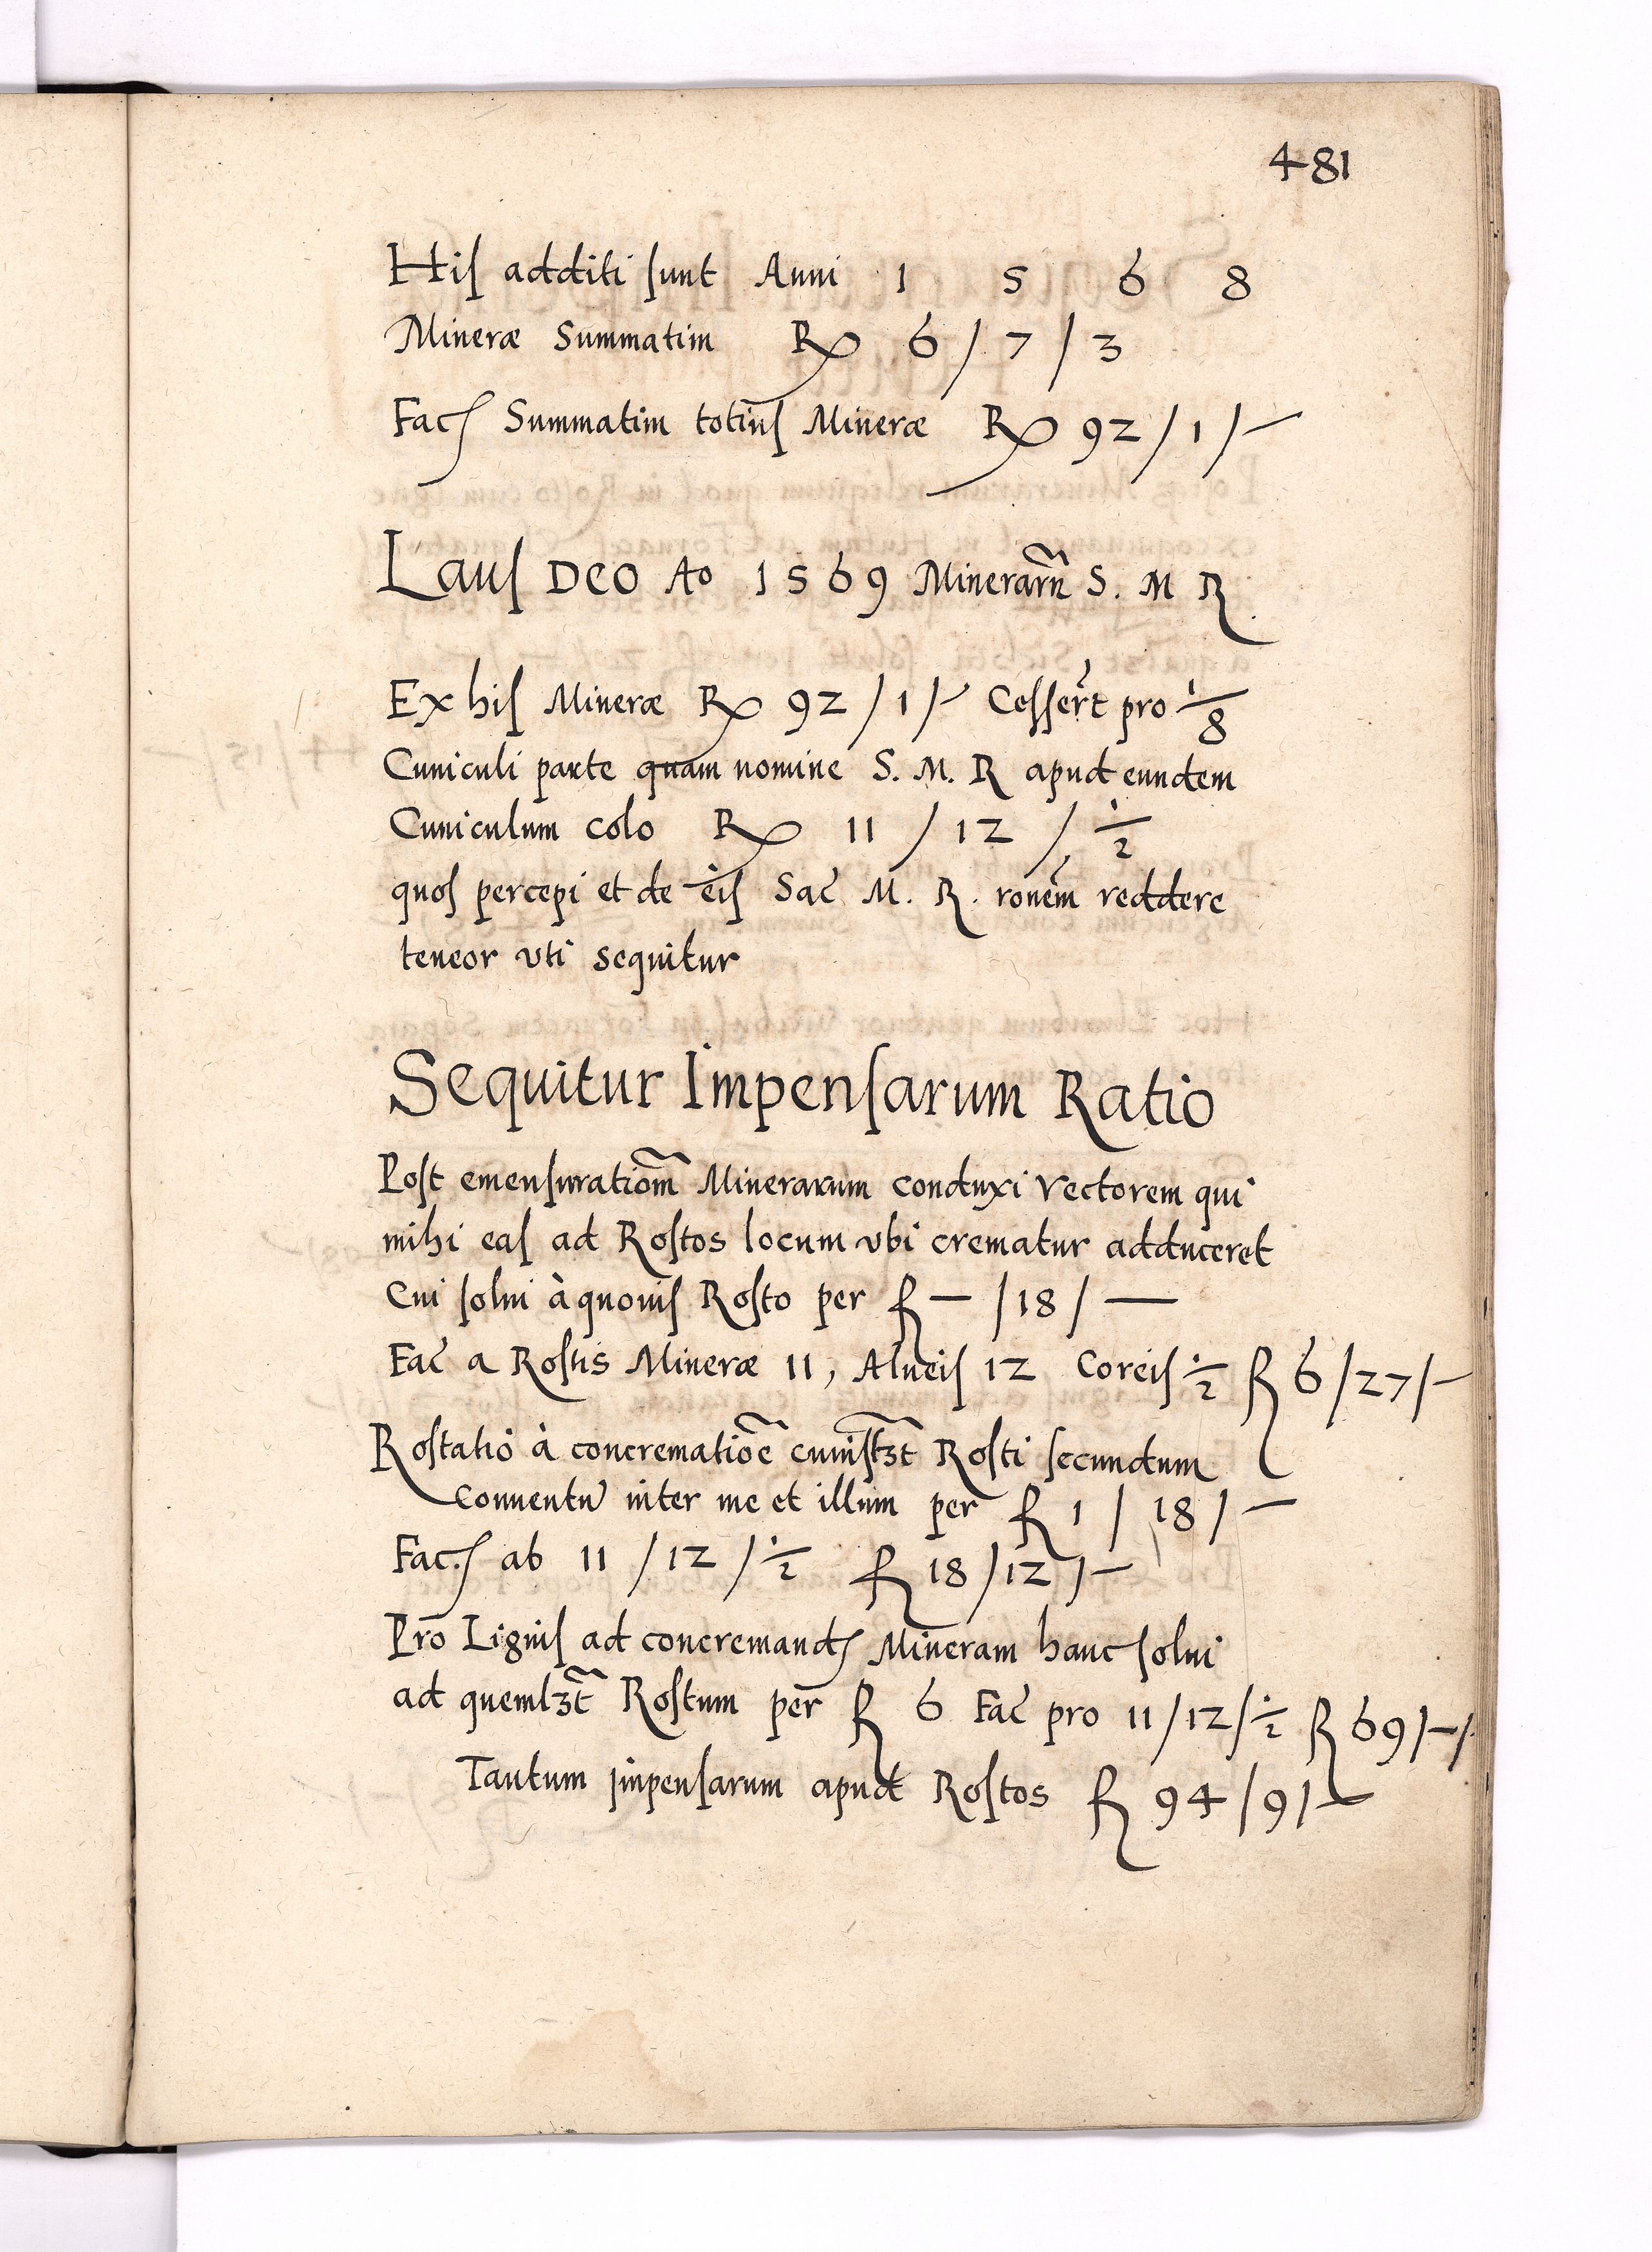 481
His additi sunt Anni 1 5 6 8
Mineræ Summatim R 6 / 7 / 3
Fac Summatim totius Mineræ R 92 / 1 / -
Laus DEO Ao 1569 Minerarũ S. M R
Ex his Mineræ R 92 / 1 / - Cesserũt pro 1/8
Cuniculi parte quam nomine S. M. R apud eundem
Cuniculum colo R 11 / 12 / 1/2
quos percepi et de eis Sac M. R. ronem reddere
teneor vti sequitur
Sequitur Impensarum Ratio
Post emensuratiom̃ Minerarum conduxi vectorem qui
mihi eas ad Rostos locum vbi crematur adduceret
Cui solui à quouis Rosto per f — / 18 / —
Fac a Rostis Mineræ 11, Alueis 12 Coreis 1/2 f 6 / 27 / -
Rostatio à concrematiõe cuiusʒt Rosti secundum
Conuentũ inter me et illum per f 1 / 18 / -
Fac. ab 11 / 12 / 1/2 f 18 / 12 / -
Pro Lignis ad concremand Mineram hanc solui
ad quemlʒt Rostum per f 6 Fac pro 11 / 12 / 1/2 f 69 / - / -
Tantum impensarum apud Rostos f 94 / 9 / -